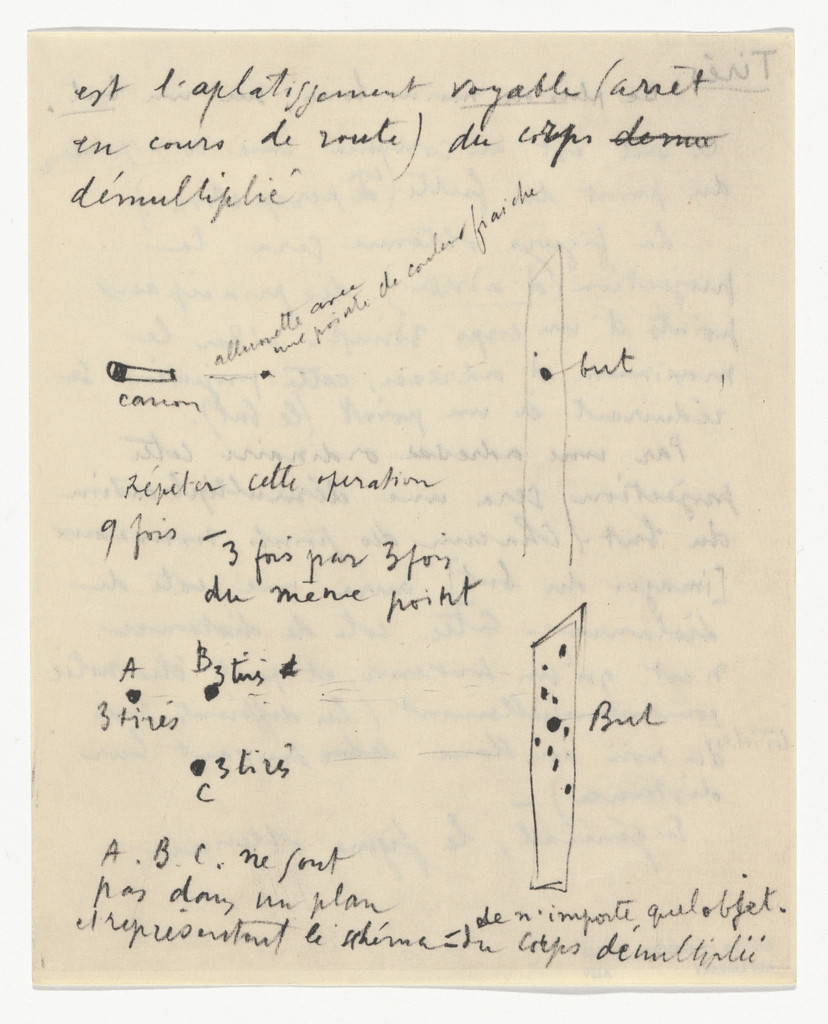 est l'aplatissement voyable (arrêt
en cours de route) du corps
démultiplié
allumette avec
une pointe de couleur fraiche
canon
but
Répéter cette operation
9 fois – 3 fois par 3 fois
du même point
A
B 3 tirés
3 tirés
But
3 tirés
C
A. B. C. ne sont
pas dans un plan
et représentent le schéma de n'importe quel objet.
du corps démultiplié